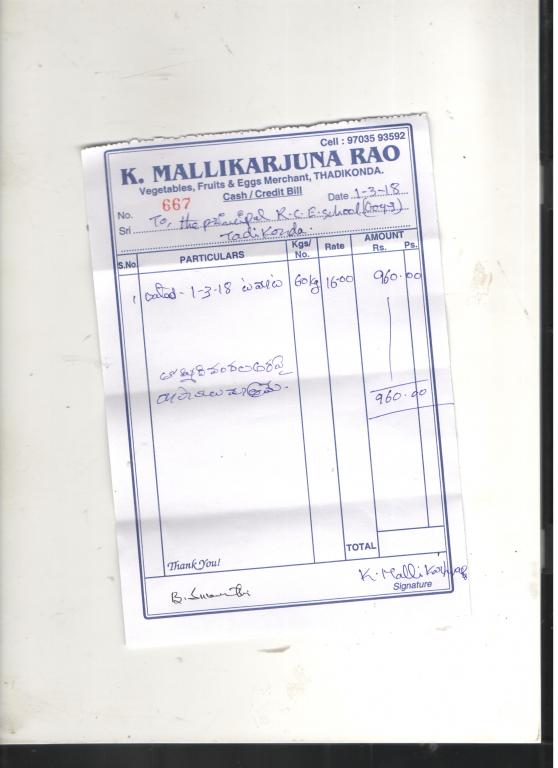 Cell : 97035 93592
K. MALLIKARJUNA RAO
Vegetables, Fruits & Eggs Merchant, THADIKONDA.
Cash / Credit Bill
No. 667 Date 1-3-18
Sri To, the principal R.C.E. school
Tadikonda.
S.No. PARTICULARS Kgs/ No. Rate AMOUNT Rs. Ps.
1 1-3-18 60 kg 16-00 960.00
960.00
TOTAL
Thank You!
K. Mallik
Signature